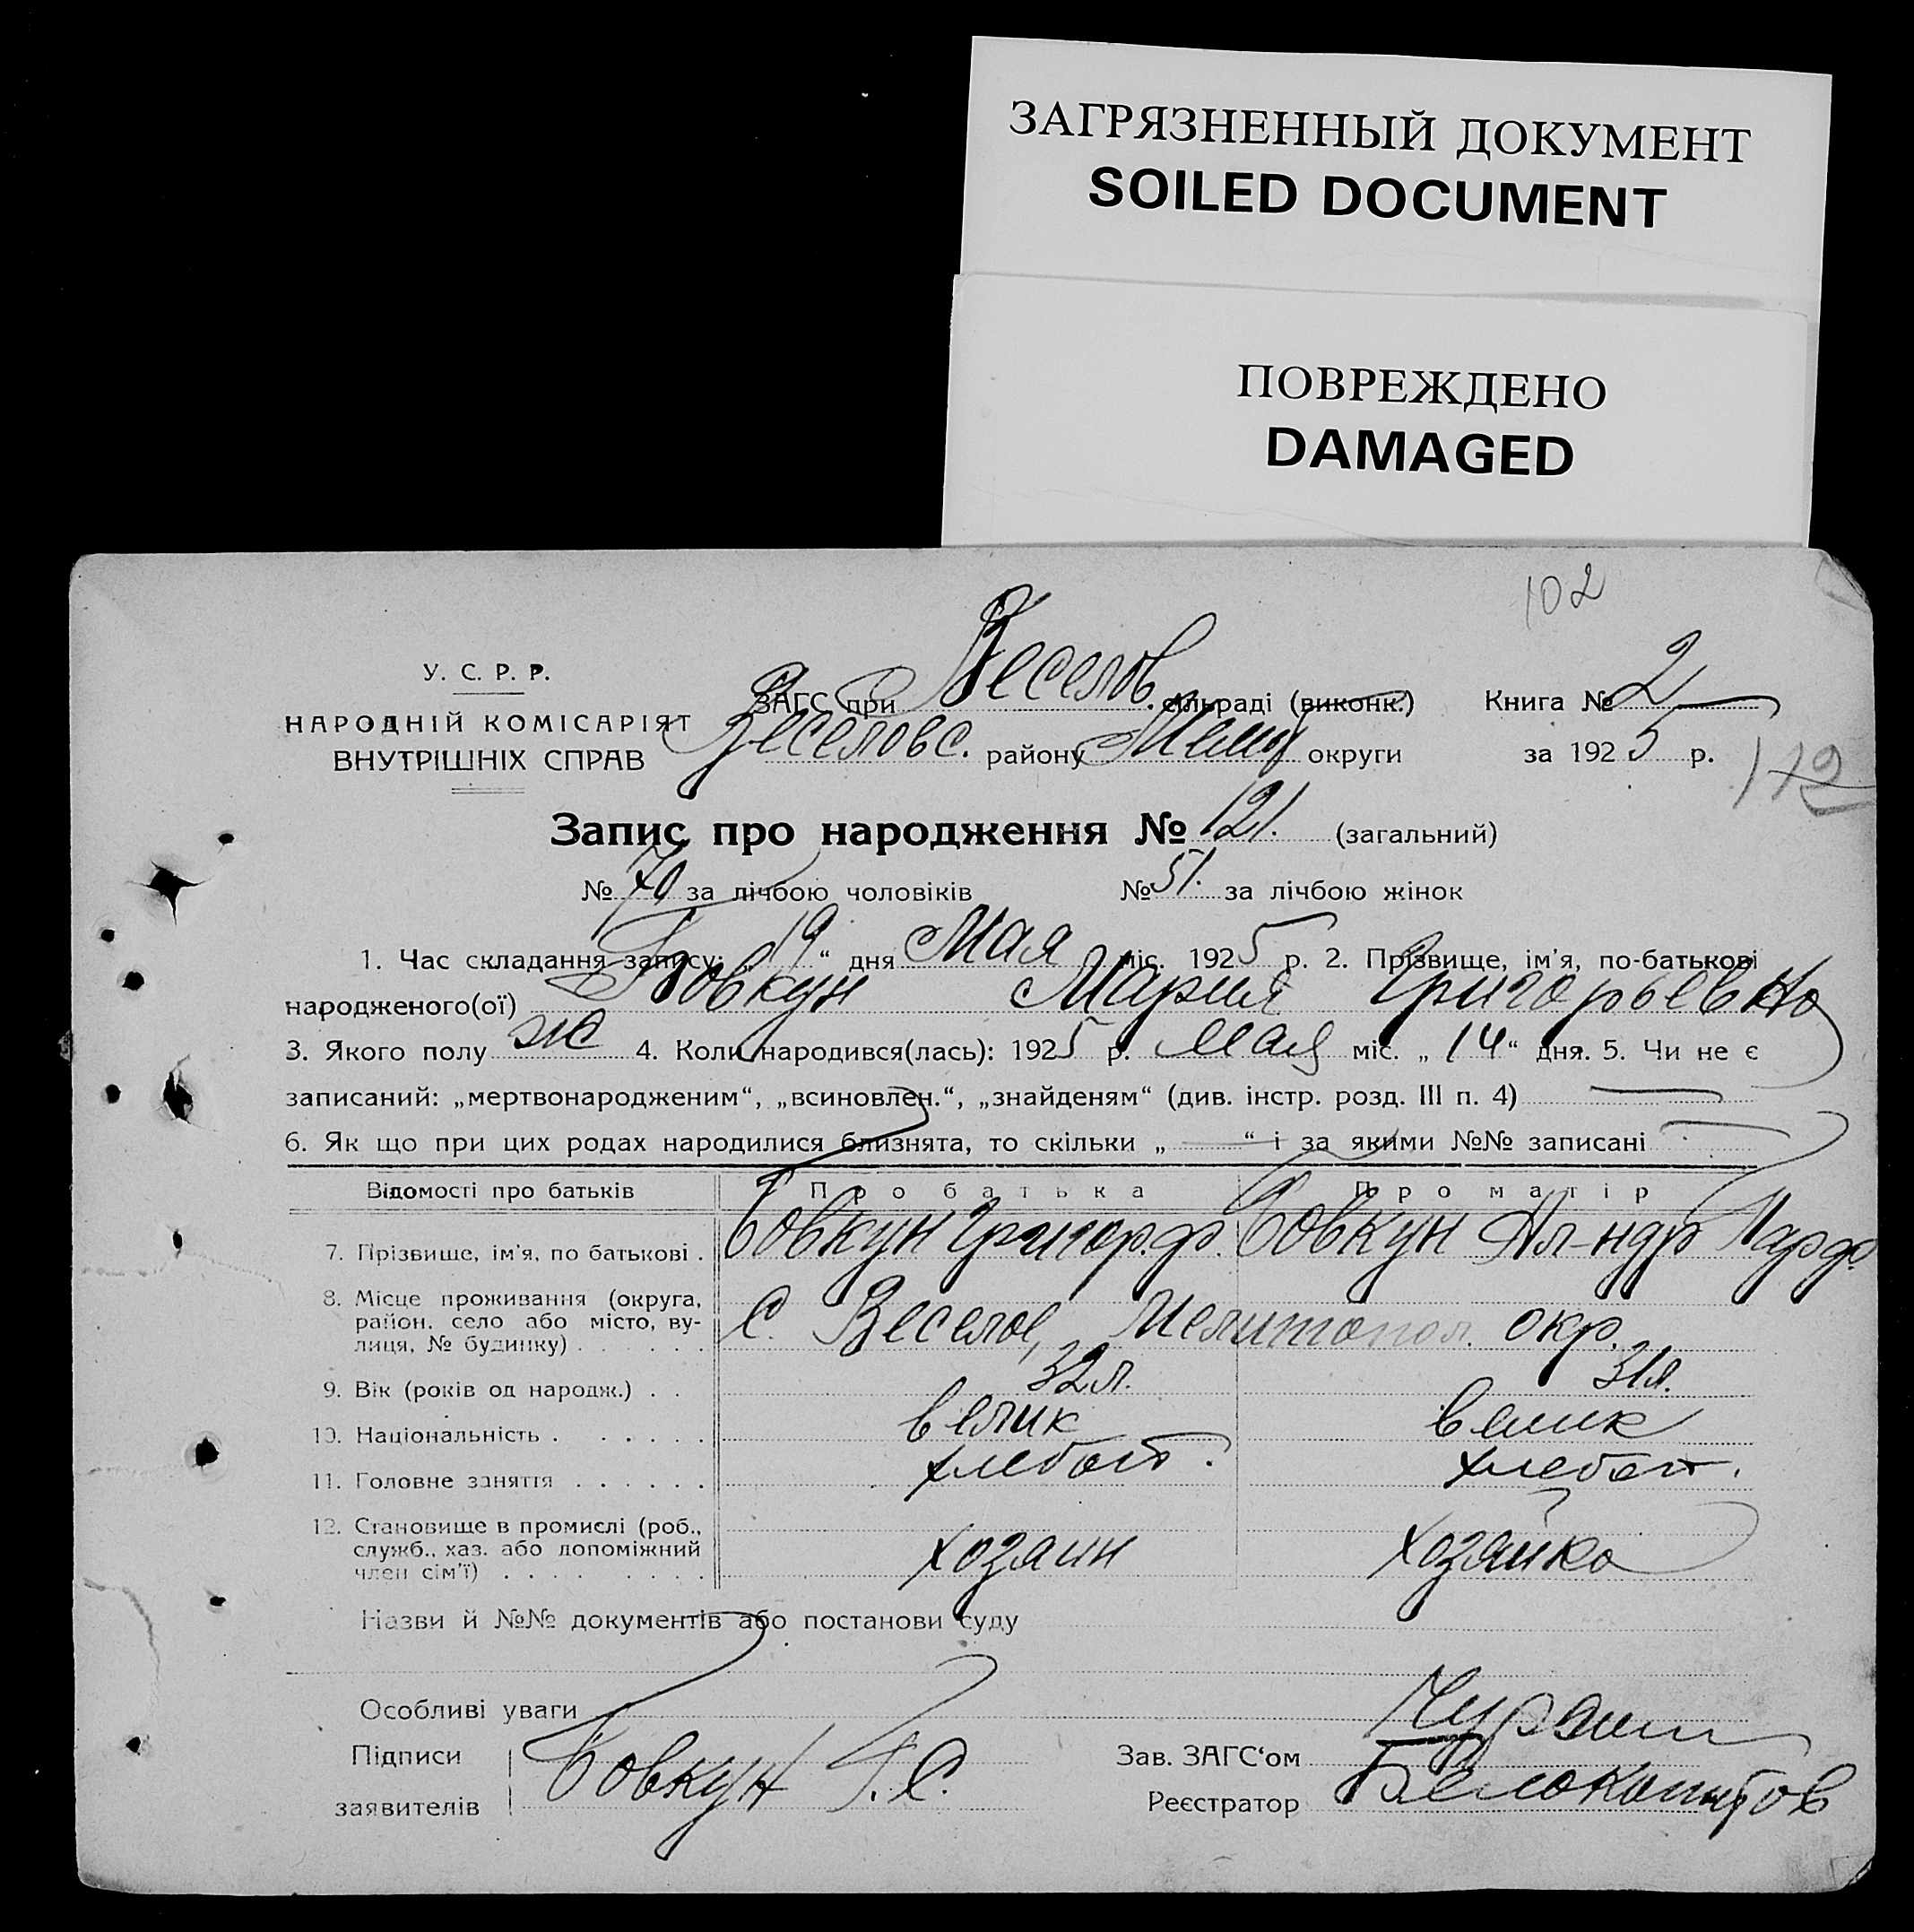 ЗАГРЯЗНЕННЫЙ ДОКУМЕНТ
SOILED DOCUMENT
ПОВРЕЖДЕНО
DAMAGED
102
У. С. Р. Р.
НАРОДНІЙ КОМІСАРІЯТ
ВНУТРІШНІХ СПРАВ
ЗАГС при Веселов. сільраді (виконк.) Книга № 2
Веселовс. району Мелит округи за 1925 р.
172
Запис про народження № 121. (загальний)
№ 70 за лічбою чоловіків № 51. за лічбою жінок
1. Час складання запису: „19“ дня Мая міс. 1925 р. 2. Прізвище, ім'я, по-батькові
народженого(ої) Бовкун Мария Григорьевна
3. Якого полу ж 4. Коли народився(лась): 1925 р. Мая міс. „14“ дня. 5. Чи не є
записаний: „мертвонародженим“, „всиновлен.“, „знайденям“ (див. інстр. розд. III п. 4) —
6. Як що при цих родах народилися близнята, то скільки „—“ і за якими №№ записані —
Відомості про батьків Про батька Про матір
7. Прізвище, ім'я, по батькові . Бовкун Григор. Бовкун Ал-ндр
8. Місце проживання (округа,
район, село або місто, ву-
лиця, № будинку) . . . . . . С. Веселое, Мелитопол. окр.
9. Вік (років од народж.) . . 32 л. 31 л.
10. Національність . . . . . . велик велик
11. Головне заняття . . . . . . хлебоп. хлебоп.
12. Становище в промислі (роб.,
служб., хаз. або допоміжний
член сім'ї) . . . . . . . . хозяин хозяйка
Назви й №№ документів або постанови суду
Особливі уваги
Підписи
заявителів Бовкун Г. С.
Зав. ЗАГС‘ом
Реєстратор Белокопытов